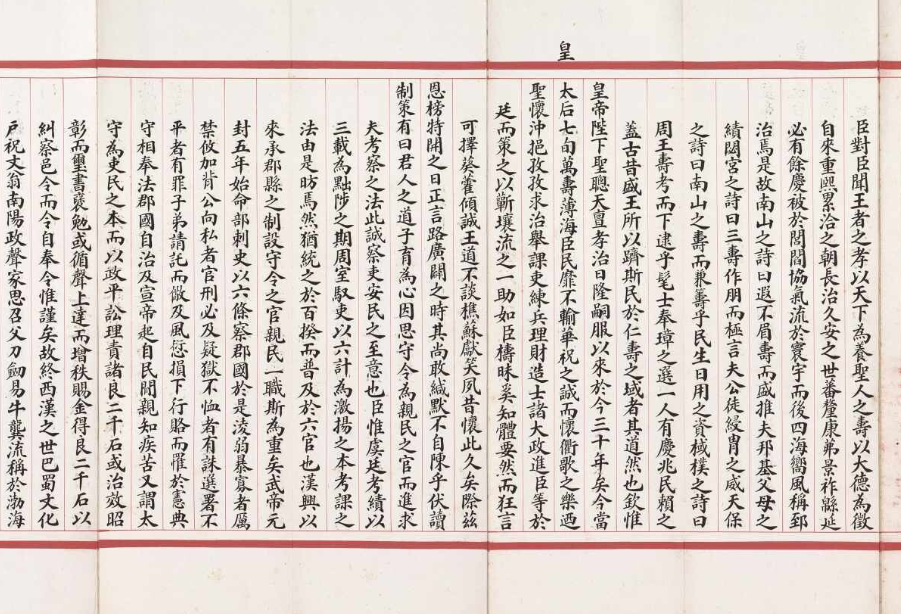 臣對臣聞王者之孝以天下為養聖人之壽以大德為徵
自來重熙累洽之朝長治久安之世蕃釐康弟景祚緜延
必有餘慶被於閭閻協氣流於寰宇而後四海嚮風稱郅
治焉是故南山之詩曰遐不眉壽而盛推夫邦基父母之
績閟宮之詩曰三壽作朋而極言夫公徒綅冑之威天保
之詩曰南山之壽而兼籌乎民生日用之資棫樸之詩曰
周王壽考而下逮乎髦士奉璋之選一人有慶兆民賴之
蓋古昔盛王所以躋斯民於仁壽之域者其道然也欽惟
皇帝陛下聖聰天亶孝治日隆嗣服以來於今三十年矣今當
皇太后七旬萬壽薄海臣民靡不輸華祝之誠而懷衢歌之樂迺
聖懷沖挹孜孜求治舉課吏練兵理財造士諸大政進臣等於
廷而策之以蘄壤流之一助如臣檮昧奚知體要然而狂言
可擇葵藿傾誠王道不談樵蘇獻笑夙昔懷此久矣際茲
恩榜特開之日正言路廣闢之時其尚敢緘默不自陳乎伏讀
制策有曰君人之道子育為心因思守令為親民之官而進求
夫考察之法此誠察吏安民之至意也臣惟虞廷考績以
三載為黜陟之期周室馭吏以六計為激揚之本考課之
法由是昉焉然猶統之於百揆而普及於六官也漢興以
來承郡縣之制設守令之官親民一職斯為重矣武帝元
封五年始命部刺史以六條察郡國於是淩弱暴寡者厲
禁攸加背公向私者官刑必及疑獄不恤者有誅選署不
平者有罪子弟請託而儆及風愆損下行賂而罹於憲典
守相奉法郡國自治及宣帝起自民間親知疾苦又謂太
守為吏民之本而以政平訟理責諸良二千石或治效昭
彰而璽書褒勉或循聲上達而增秩賜金得良二千石以
糾察邑令而令自奉令惟謹矣故終西漢之世巴蜀文化
戶祝文翁南陽政聲家思召父刀劒易牛龔流稱於渤海